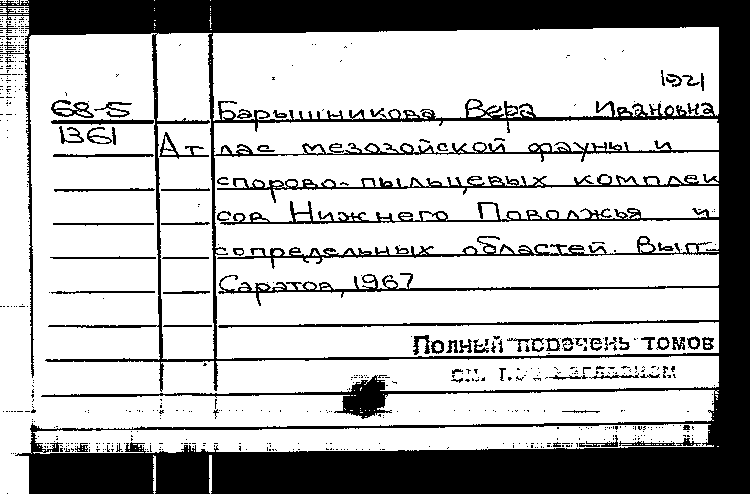 1921
68-5 Барышникова, Вера Ивановна
1361 Атлас мезозойской фауны и
спорово-пыльцевых комплек
сов Нижнего Поволжья и
сопредельных областей. Вып-
Саратов, 1967
Полный перечень томов
см. под заглавием